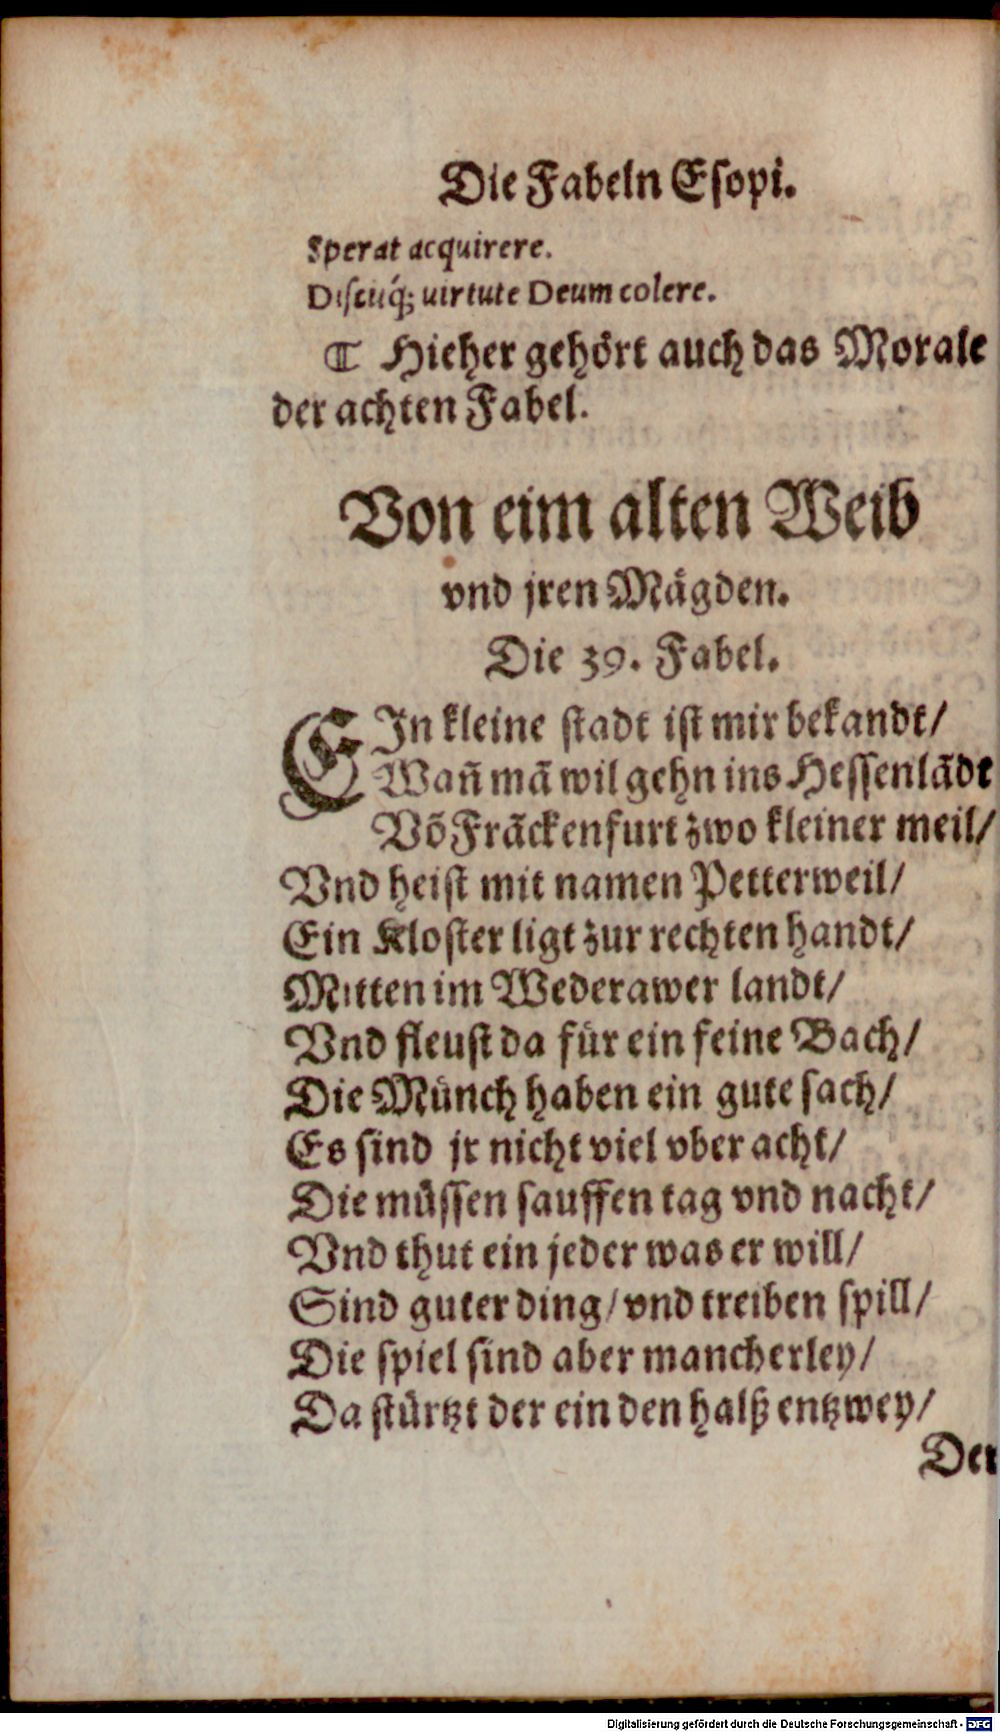 Die Fabeln Esopi.
Sperat acquirere.
Discitq́; uirtute Deum colere.
¶ Hieher gehört auch das Morale
der achten Fabel.
Von eim alten Weib
vnd jren Mägden.
Die 39. Fabel.
EIn kleine stadt ist mir bekandt/
Wañ mã wil gehn ins Hessenlãdt
Võ Frãckenfurt zwo kleiner meil/
Vnd heist mit namen Petterweil/
Ein Kloster ligt zur rechten handt/
Mitten im Wederawer landt/
Vnd fleust da für ein feine Bach/
Die Münch haben ein gute sach/
Es sind jr nicht viel vber acht/
Die müssen sauffen tag vnd nacht/
Vnd thut ein jeder was er will/
Sind guter ding/ vnd treiben spill/
Die spiel sind aber mancherley/
Da stürtzt der ein den halß entzwey/
Der
Digitalisierung gefördert durch die Deutsche Forschungsgemeinschaft - DFG